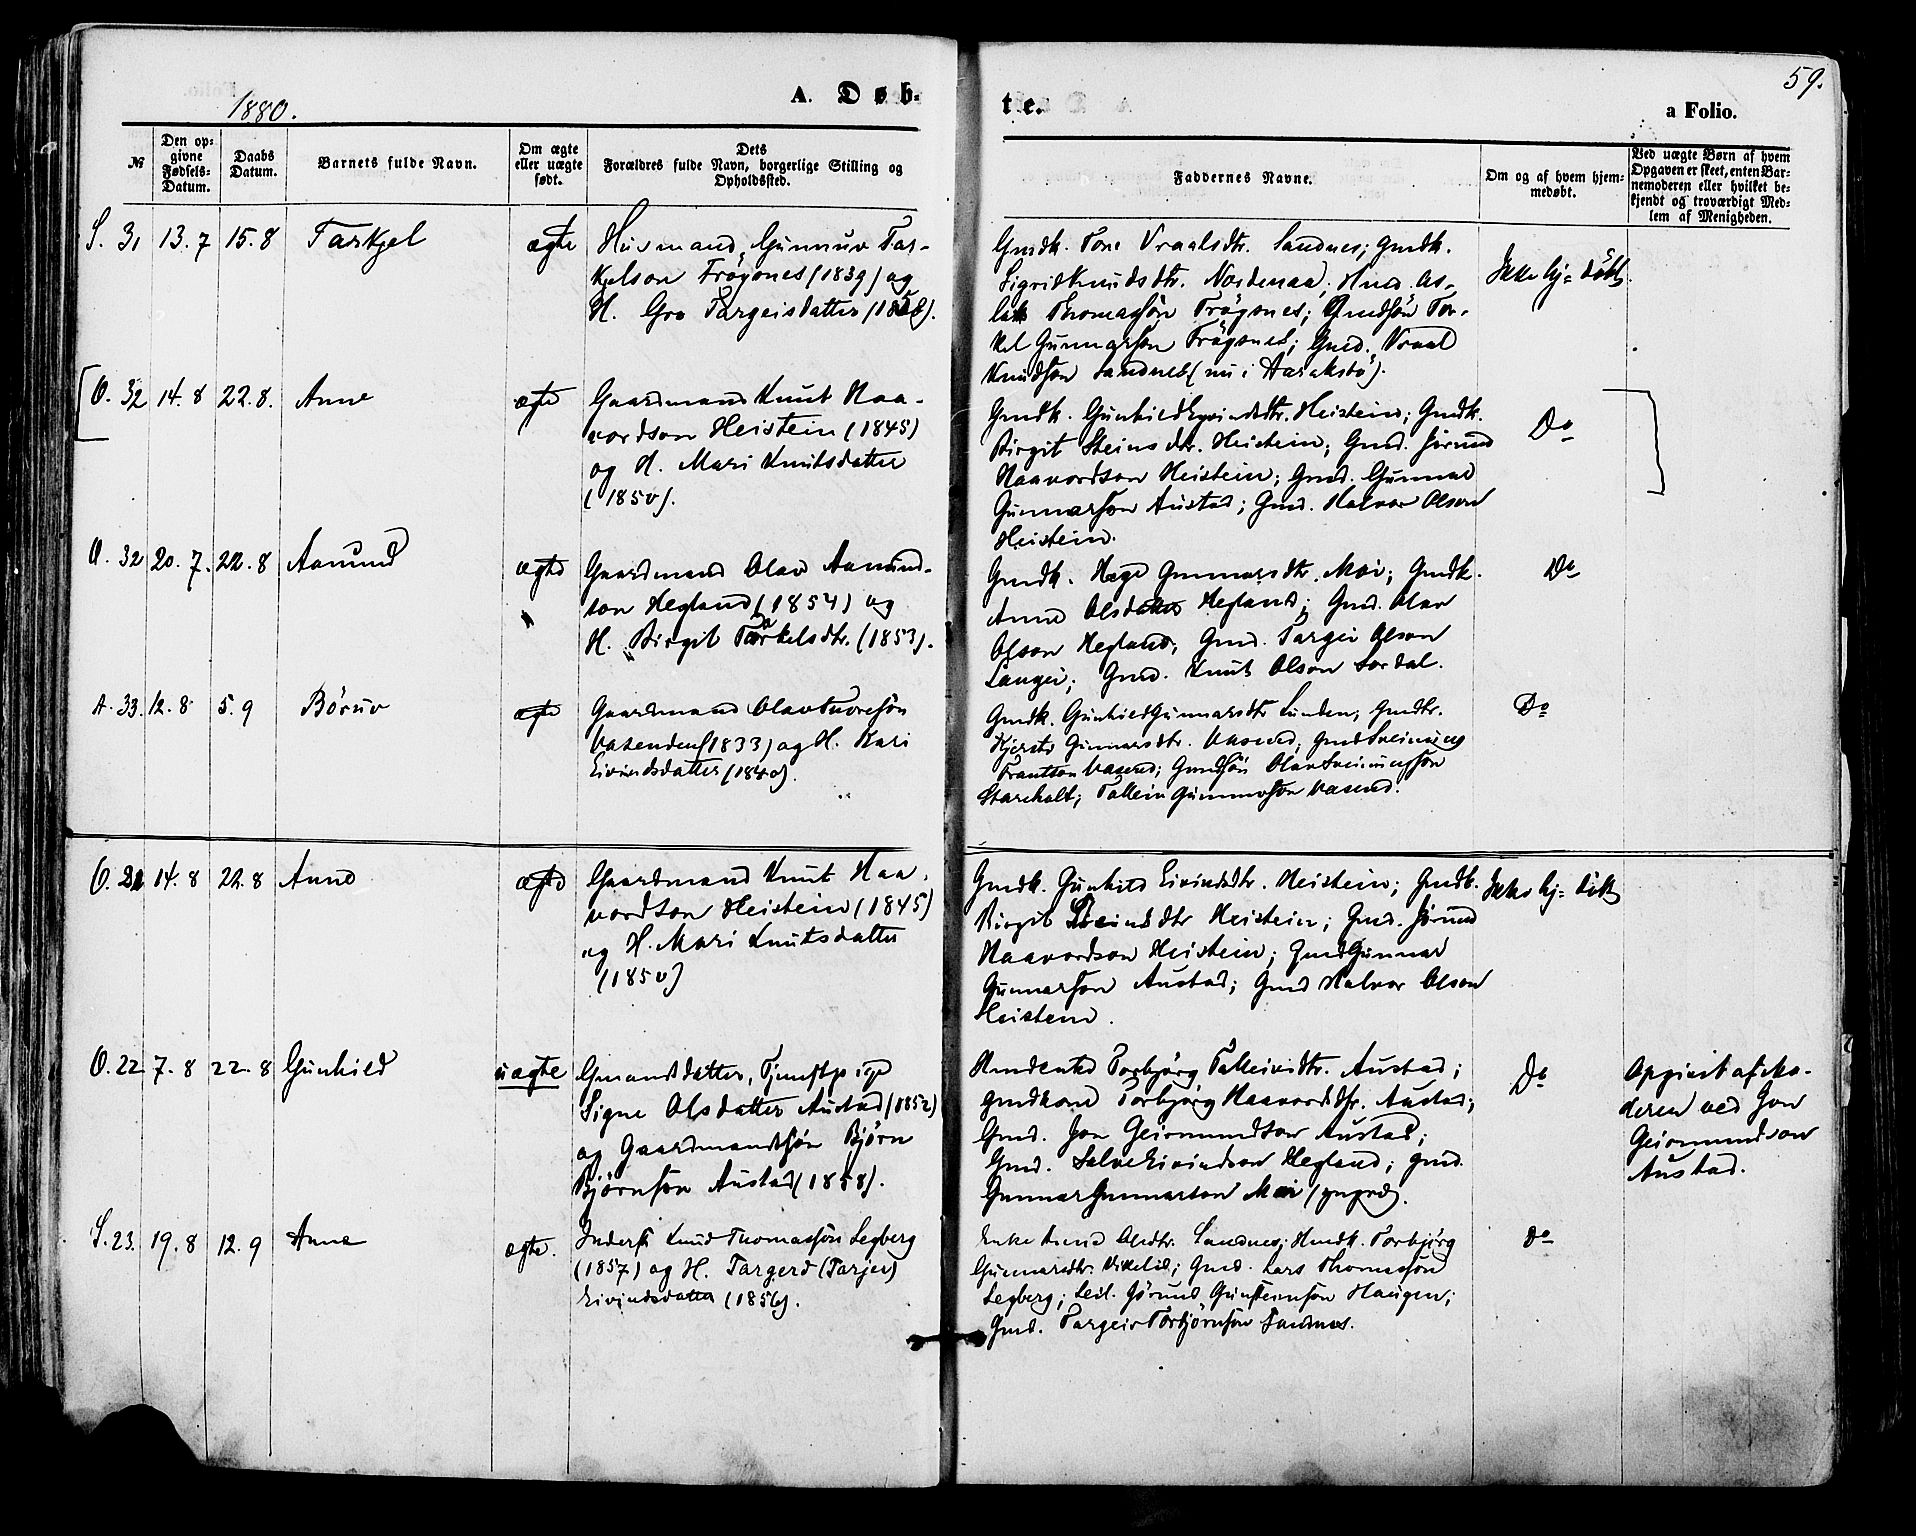 59.
1880.
A. Døb-
te.
a Folio.
№
Den op-
givne
Fødsels-
Datum.
Daabs
Datum.
Barnets fulde Navn.
Om ægte
eller uægte
født.
Dets
Forældres fulde Navn, borgerlige Stilling og
Opholdssted.
Faddernes Navne.
Om og af hvem hjem-
medøbt.
Ved uægte Børn af hvem
Opgaven er skeet, enten Bar-
nemoderen eller hvilket be-
kjendt og troværdigt Med-
lem af Menigheden.
S. 31 13.7 15.8 Tarkjel ægte
Husmand Gunnuv Tar-
kjelson Frøysnes (1839) og
H. Gro Targeisdatter
Gmdk. Tone Vraalsdtr. Sandnes; Gmdk.
Sigrid Knudsdtr. Nordenaa; Hmd. As-
lak Thomassøn Frøysnes; Gmdsøn Tor-
kel Gunnarson Frøysnes; Gmd. Vraal
Knudson Sandnes (nu i Haraksbø).
Ikke hj= døbt.
O. 32 14.8 22.8. Anne ægte
Gaardmand Knut Haa-
vordson Heistein (1845)
og H. Mari Knutsdatter
(1850).
Gmdk. Gunhild Eyvindsdtr. Heistein; Gmdk.
Birgit Steinsdtr. Heistein; Gmd. Jørund
Haavordson Heistein; Gmd. Gunnar
Gunnarson Austad; Gmd. Halvor Olson
Heistein.
Do
O. 32 20.7. 22.8 Aamund ægte
Gaardmand Olav Aamund-
son Hegland (1854) og
H. Birgit Tarkelsdtr. (1853).
Gmdk. Hæge Gunnarsdtr. Moi; Gmdk.
Anne Olsdatter Hegland; Gmd. Olav
Olson Hegland; Gmd. Targei Olson
Langei; Gmd. Knut Olson Sordal.
Do
A. 33. 12.8 5.9 Børuv ægte
Gaardmand Olav Tvoresøn
Vasenden (1833) og H. Kari
Eivindsdatter (1840).
Gmdk. Gunhild Gunnarsdtr Lunden; Gmdtr.
Kjersti Gunnarsdtr. Vasend; Gmd Sveinung
Frantson Vasend; Gmdsøn Olav Sveinungson
Stareholt; Tallein Gunnarson Vasend.
Do
O. 21 14.8 22.8 Anne ægte
Gaardmand Knut Haa-
vordson Heistein (1845)
og H. Mari Knutsdatter
(1850)
Gmdk. Gunhild Eivindsdtr. Heistein; Gmdk.
Birgit Steinsdtr Heistein; Gmd. Jørund
Haavordson Heistein; Gmd Gunnar
Gunnarson Austad; Gmd Halvor Olson
Heistein.
Ikke hj= døbt
O. 22 7.8 22.8 Gunhild uægte
Gmandsdatter, Tjenstpige
Signe Olsdatter Austad (1852)
og Gaardmandssøn Bjørn
Bjørnson Austad (1858).
Torbjørg Talleivsdtr. Austad;
Gmdkone Torbjørg Haavordsdtr. Austad;
Gmd. Jon Geirmundson Austad;
Gmd. Salve Eivindson Hegland; Gmd.
Gunnar Gunnarson Moi
Do
Opgivet af Mo-
deren ved Jon
Geirmundson
Austad.
S. 23. 19.8 12.9 Anne ægte.
Inderst Knud Thomassøn Legberg
(1857) og H. Targerd (Tarjer)
Eivindsdatter (1856).
Enke Anne Olsdtr. Sandnes; Hmdk. Torbjørg
Gunnarsdtr. Vikelid; Gmd. Lars Thomassøn
Legberg; Leil. Jørund Gunsteinsøn Haugen;
Gmd. Targeir Torbjørnsøn Sandnes.
Do